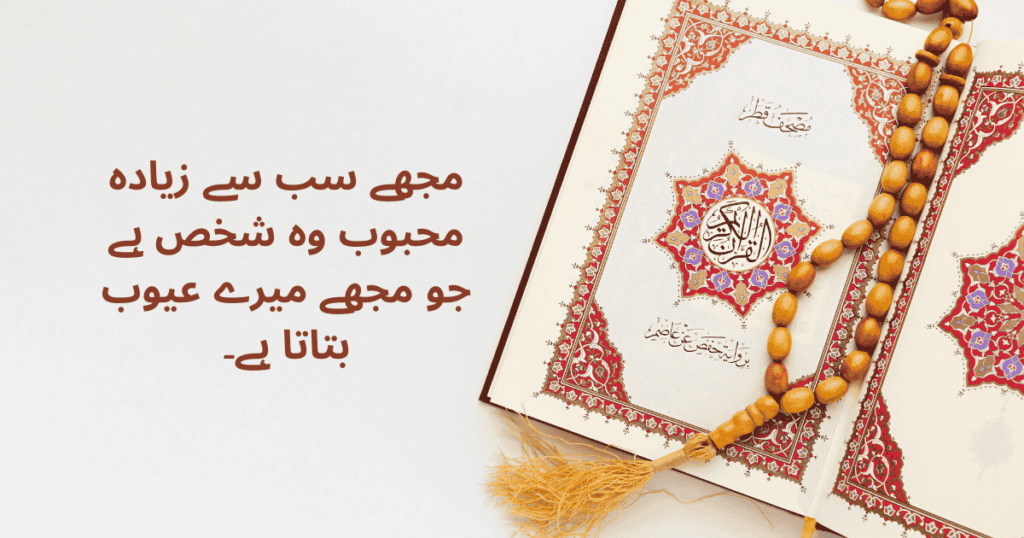 مجھے سب سے زیادہ
محبوب وہ شخص ہے
جو مجھے میرے عیوب
بتاتا ہے۔
مصحف قطر
القرآن الكريم
برواية حفص عن عاصم